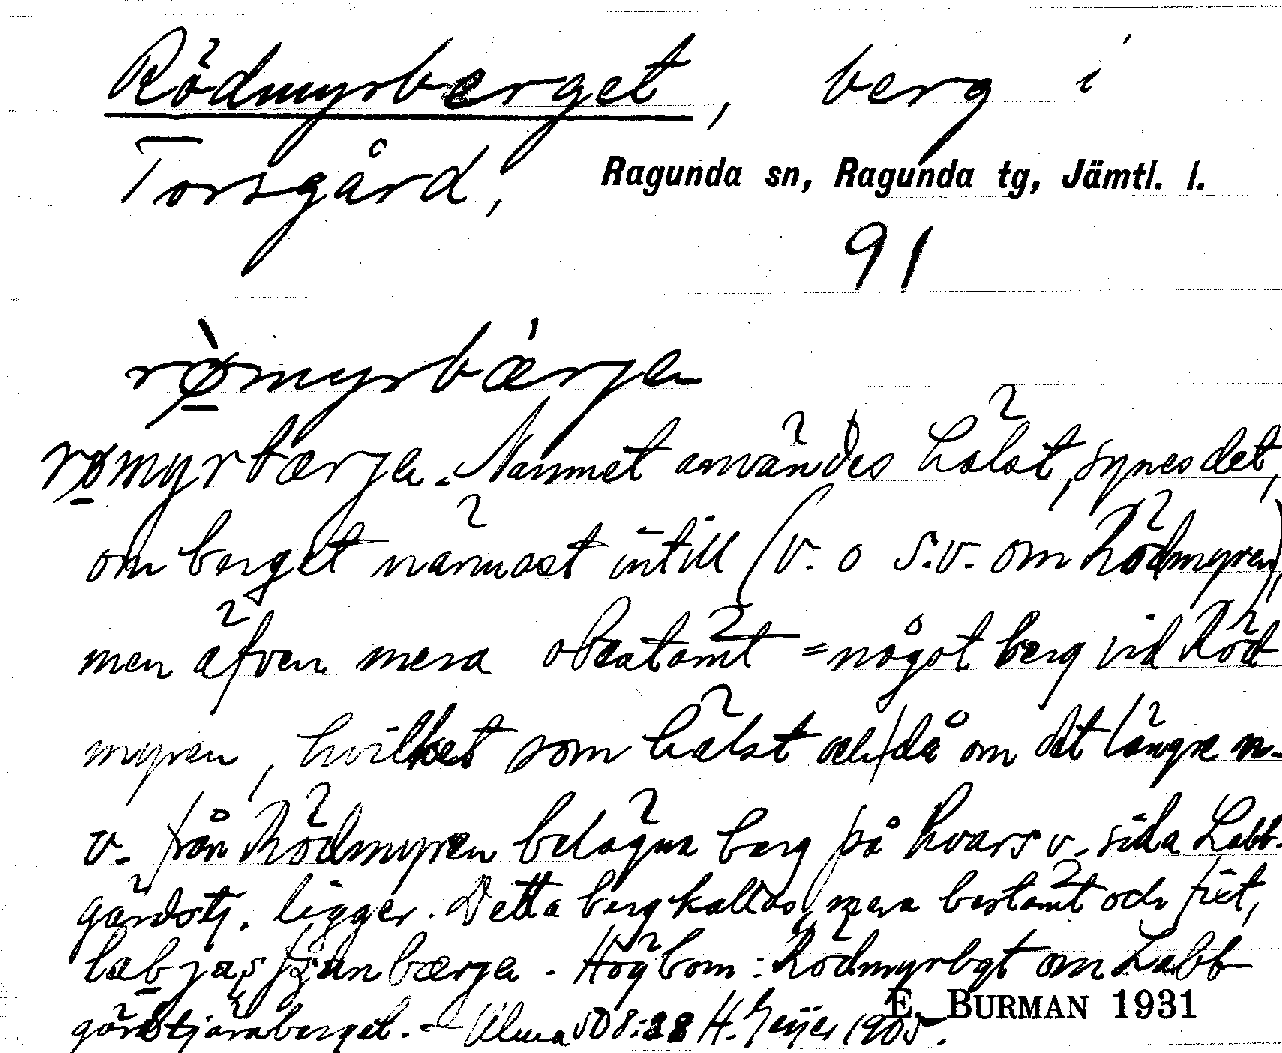 Rödmyrberget, berg i
Torsgård, Ragunda sn, Ragunda tg, Jämtl. l.
91
rø̀myrbærja
rømyrbærja. Namnet användes hälst, synes det,
om berget närmast intill (v. o s.v. om Rödmyren)
men äfven mera obestämt = något berg vid Röd
myren, hvilket som hälst och då om det längre n.
v. från Rödmyren belägna berg på hvars v. sida Labb-
gårdstj. ligger. Detta berg kallas, mera bestämt och fixt,
bærja. Högbom: Rödmyrbgt om Labb
gårdstjärnberget. - Ulma 508:28 H. Geijer 1905.
E. BURMAN 1931